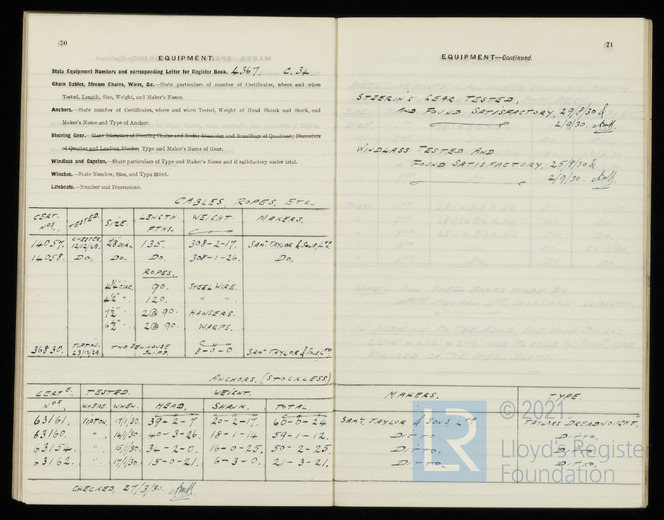 70
EQUIPMENT.
State Equipment Numbers and corresponding Letter for Register Book. 4367. C.34
Chain Cables, Stream Chains, Wires, &c.—State particulars of number of Certificates, where and when
Tested, Length, Size, Weight, and Maker's Name.
Anchors.—State number of Certificates, where and when Tested, Weight of Head Shank and Stock, and
Maker's Name and Type of Anchor.
Steering Gear.—State Diameter of Steering Chains and Rods; Diameter and Scantlings of Quadrant; Diameters
of Quarter and Leading Blocks; Type and Maker's Name of Gear.
Windlass and Capstan.—State particulars of Type and Maker's Name and if satisfactory under trial.
Winches.—State Number, Size, and Type fitted.
Lifeboats.—Number and Dimensions.
CABLES, ROPES, ETC.
CERT. NOS. TESTED. SIZE. LENGTH FTHS. WEIGHT. MAKERS.
14057. 12/12/29. DIA. 135. 308-2-17. SAML TAYLOR & SONS LTD
14058. DO. DO. DO. 308-1-26. DO.
ROPES.
90. STEEL WIRE.
120. " "
2@90. HAWSERS.
2@90. WARPS.
36830. TIPTON. SLIPS. 8-3-0. SAML TAYLOR & SONS LTD
ANCHORS, (STOCKLESS)
CERTE NOS. TESTED. WHERE WHEN. WEIGHT. HEAD. SHANK. TOTAL.
63161. TIPTON. 17/1/30. 39-2-7. 20-2-17. 60-0-24
63160. " 16/1/30 40-3-26. 18-1-14 59-1-12.
63154. " 15/1/30. 34-2-0. 16-0-25. 50-2-25.
63162. " 17/1/30. 15-0-21. 6-3-0. 21-3-21.
CHECKED, 27/3/30.
71
EQUIPMENT—Continued.
STEERING GEAR TESTED,
AND FOUND SATISFACTORY, 29/8/30 &
2/9/30.
WINDLASS TESTED AND
FOUND SATISFACTORY, 25/8/30 &
2/9/30.
MAKERS. TYPE.
SAML TAYLOR & SONS LTD TAYLORS DREADNOUGHT.
DITTO. DITTO.
DITTO. DITTO.
DITTO. DITTO.
LR
© 2021
Lloyd's Register
Foundation